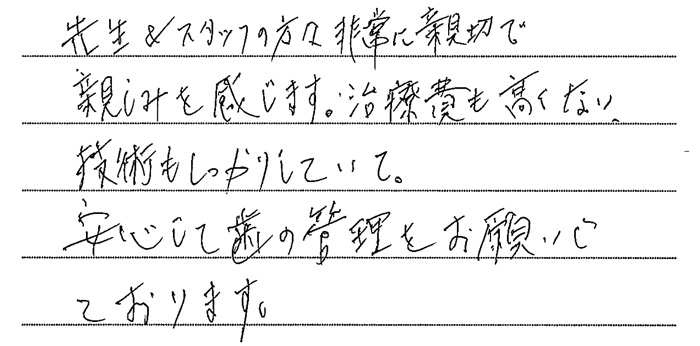 先生&スタッフの方々非常に親切で
親しみを感じます。治療費も高くない。
技術もしっかりしていて。
安心して歯の管理をお願いし
ております。